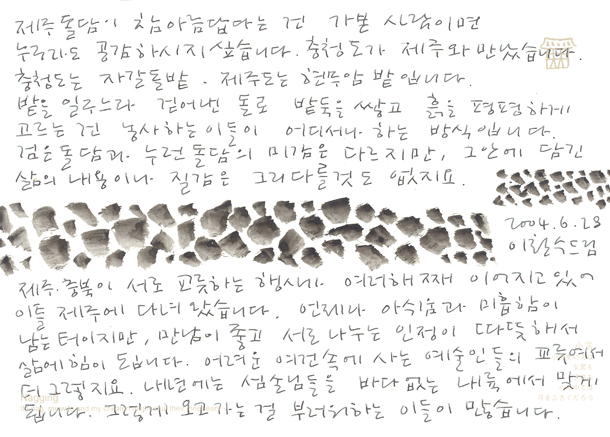 제주 돌담이 참 아름답다는 건 가본 사람이면
누구라도 공감하시지 싶습니다. 충청도가 제주와 만났습니다.
충청도는 자갈돌밭. 제주도는 현무암 밭입니다.
밭을 일구느라 걷어낸 돌로 밭둑을 쌓고 흙을 평평하게
고르는 건 농사하는 이들이 어디서나 하는 방식입니다.
검은 돌담과 누런 돌담의 미감은 다르지만, 그 안에 담긴
삶의 내용이나 질감은 그리 다를것도 없지요.
2004.6.28
이철수드림
제주.충북이 서로 교류하는 행사가 여러해째 이어지고 있어
이틀 제주에 다녀왔습니다. 언제나 아쉬움과 미흡함이
남는 터이지만, 만남이 좋고 서로 나누는 인정이 따뜻해서
삶에 힘이 됩니다. 어려운 여건속에 사는 예술인들의 교류여서
더 그렇지요. 내년에는 섬 손님들을 바다 없는 내륙에서 맞게
됩니다. 그렇게 오고가는걸 부러워하는 이들이 많습니다.